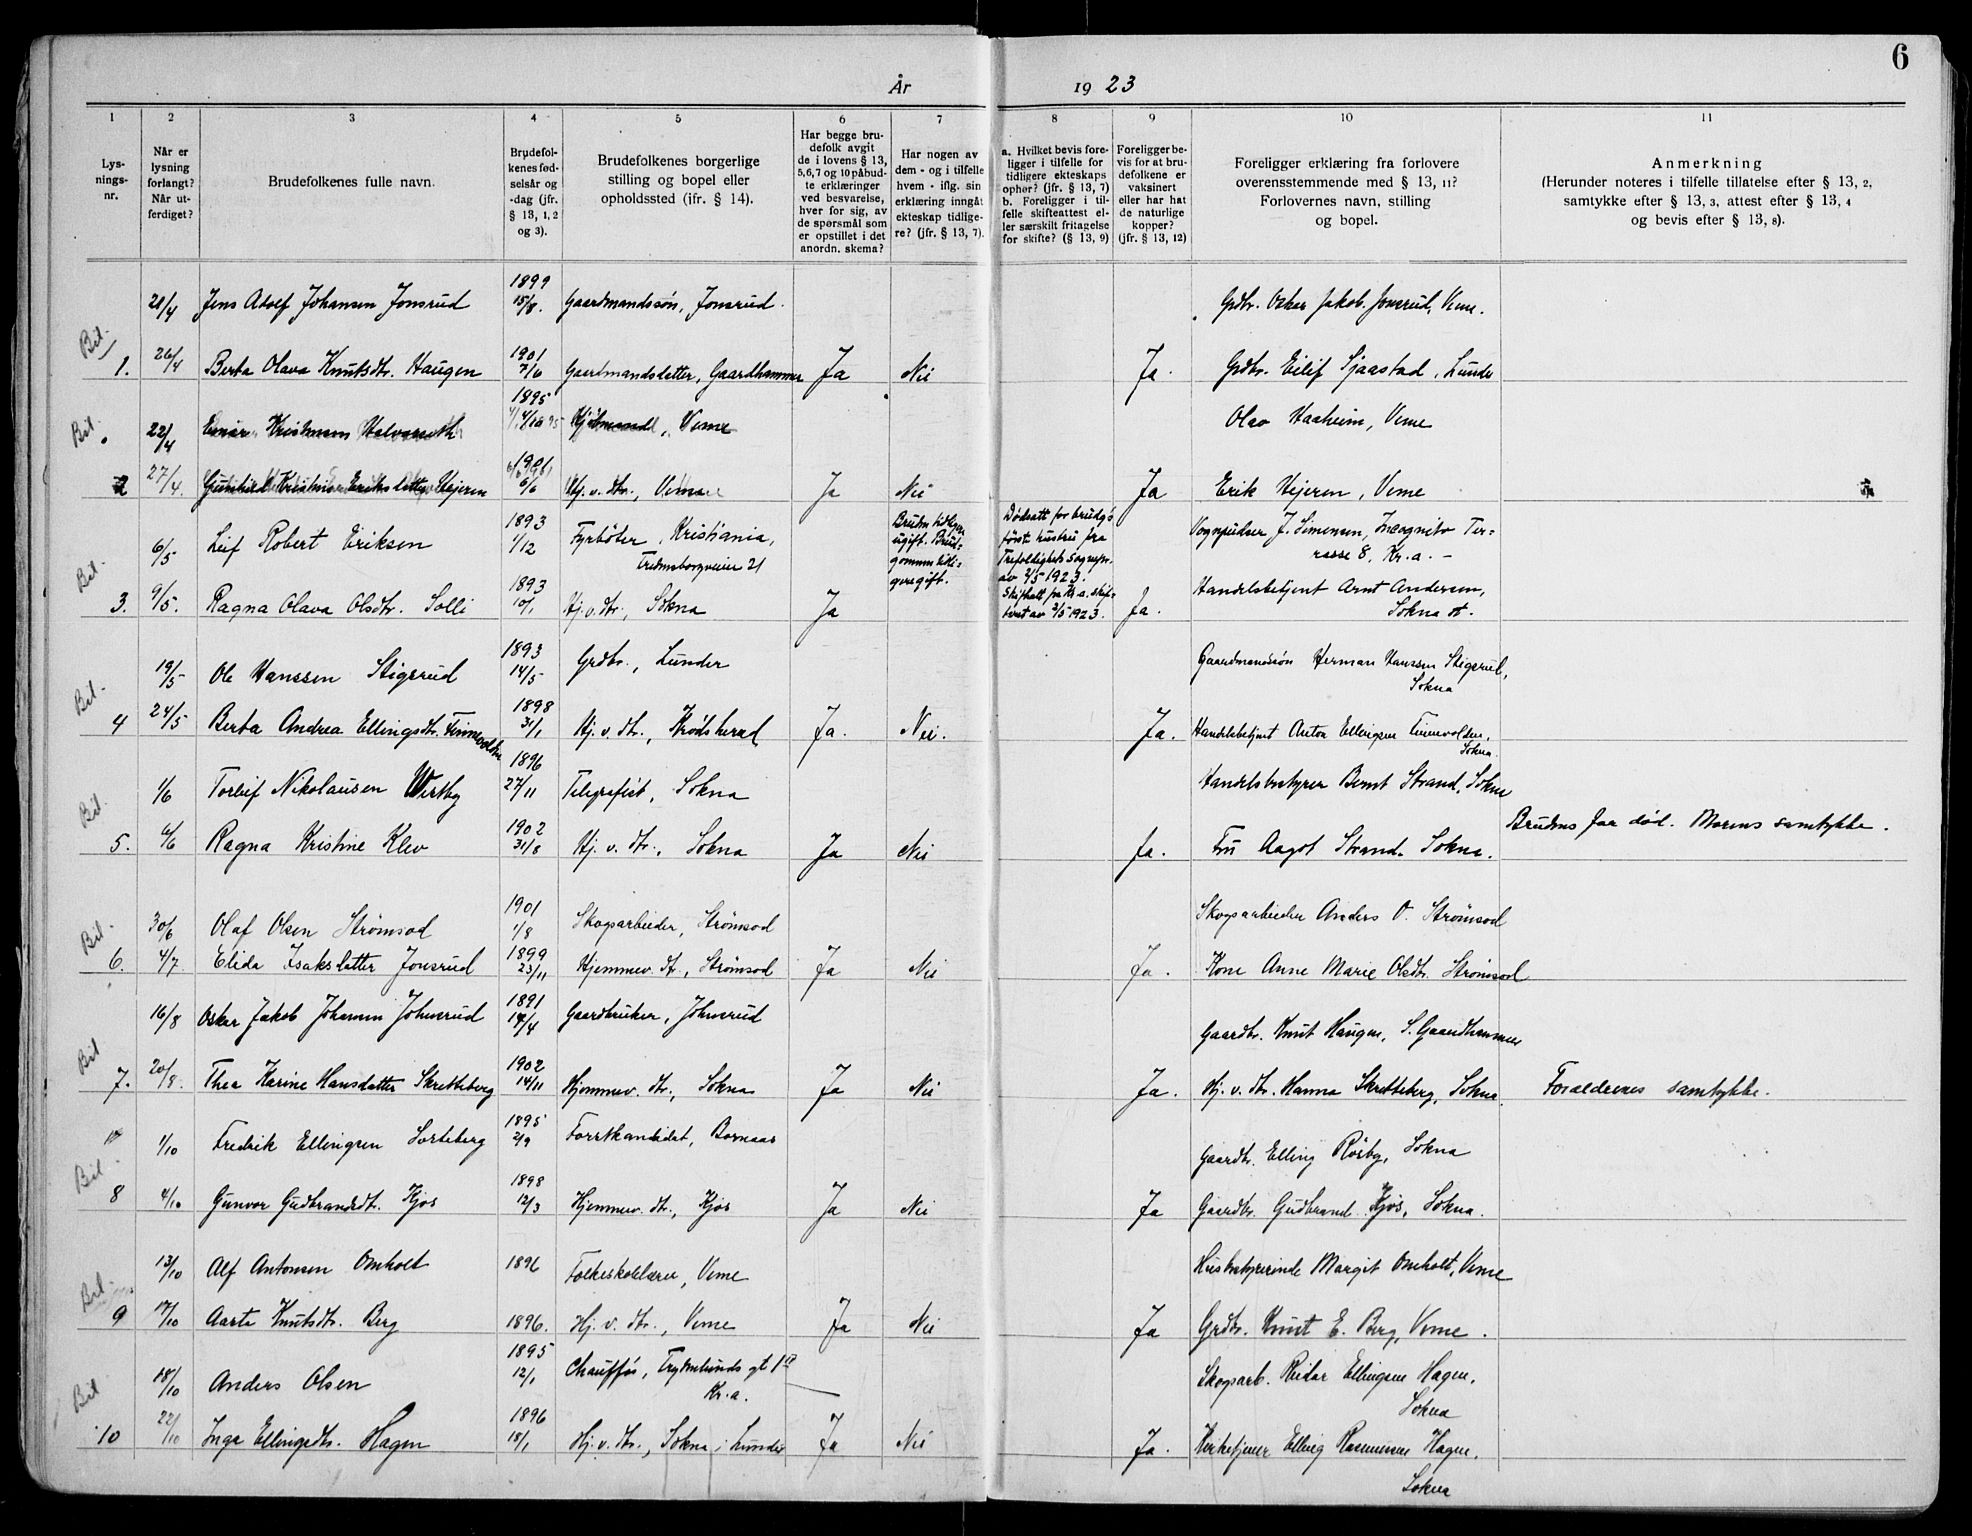 6
År 1923
1 2 3 4 5 6 7 8 9 10 11
Lys-
nings-
nr.
Når er
lysning
forlangt?
Når ut-
ferdiget?
Brudefolkenes fulle navn.
Brudefol-
kenes fød-
selsår og
-dag (jfr.
§ 13, 1, 2
og 3).
Brudefolkenes borgerlige
stilling og bopel eller
opholdssted (ifr. § 14).
Har begge bru-
defolk avgit
de i lovens § 13,
5,6,7 og 10 påbud-
te erklæringer
ved besvarelse,
hver for sig, av
de spørsmål som
er opstillet i det
anordn. skema?
Har nogen av
dem - og i tilfelle
hvem - iflg. sin
erklæring inngåt
ekteskap tidlige-
re? (jfr. § 13, 7).
a. Hvilket bevis fore-
ligger i tilfelle for
tidligere ekteskaps
ophør? (jfr. § 13, 7)
b. Foreligger i til-
felle skifteattest el-
ler særskilt fritagelse
for skifte? (§ 13, 9)
Foreligger be-
vis for at bru-
defolkene er
vaksinert
eller har hat
de naturlige
kopper?
(jfr. § 13, 12)
Foreligger erklæring fra forlovere
overensstemmende med § 13, 11?
Forlovernes navn, stilling
og bopel.
Anmerkning
(Herunder noteres i tilfelle tillatelse efter § 13, 2,
samtykke efter § 13, 3, attest efter § 13, 4
og bevis efter § 13, 8).
21/4 Jens Adolf Johansen Jonsrud 1899 15/8. Gaardmandssøn, Jonsrud. Grdbr. Oskar Jakob Jonsrud, Veme.
Bil. 1. 26/4 Berta Olava Knutsdtr. Haugen 1901 7/6 Gaardmandsdatter, Gaardhammer Ja Nei Ja. Grdbr. Eilif Sjaastad, Lunder
22/4 Einar Kristiansen 1895 Veme Olav Haaheim, Veme
Bil. 2 27/4. Gunhild Kristine Eriksdatter Hejeren 1901 6/6 Hj. v. dtr., Veme Ja Nei Ja Erik Hejeren, Veme
6/5 Leif Robert Eriksen 1893 1/12 Fyrbøter, Kristiania,
21
Bruden tidligere
ugift. Brud-
gommen tidli-
gere gift.
Dødsatt for brudg's
første hustru fra
Trefoldighets Sognepr.
av 2/5 1923.
Skifteatt fra Kr.a. skif-
teret av 3/5 1923.
Vognpudser J. Simensen, Incognito Ter-
rasse 8, Kr.a. -
Bil. 3. 9/5. Ragna Olava Olsdtr. Solli 1893 10/1 Hj. v. dtr., Sokna Ja Ja. Handelsbetjent Arnt Andersen,
Sokna st.
19/5 Ole Hanssen Stigsrud 1893 14/5 Grdbr., Lunder Gaardmandssøn Herman Hanssen Stigsrud,
Sokna
Bil. 4 24/5 Berta Andrea Ellingsdtr. Finnevolden 1898 31/1 Hj. v. dtr., Krødsherad Ja. Nei. Ja. Handelsbetjent Anton Ellingsen Finnevolden,
Sokna
1/6 Torleif Nikolausen Werlby 1896 27/11 Telegrafist, Sokna Handelsbestyrer Bernt Strand, Sokna
Bil 5. 6/6 Ragna Kristine Klev 1902 31/8 Hj. v. dtr., Sokna Ja Nei Ja. Fru Aagot Strand. Sokna. Brudens far død. Morens samtykke.
30/6 Olaf Olsen Strømsod 1901 1/8 Skogsarbeider, Strømsod Skogsarbeider Anders O. Strømsod
Bil. 6. 4/7. Elida Isaksdatter Jonsrud 1899 23/11 Hjemmev. dt., Strømsod Ja Nei Ja. Kone Anne Marie Olsdtr. Strømsod
16/8 Oskar Jakob Johansen Johnsrud 1891 14/4 Gaardbruker, Johnsrud Gaardbr. Knut Haugen, S. Gaardhammer
Bil 7. 20/8. Thea Karine Hansdatter Skretteberg 1902 14/11 Hjemmev. dtr., Sokna Ja Nei Ja. Hj. v. dtr. Hanna Skretteberg, Sokna. Forældrenes samtykke.
1/10 Fredrik Ellingsen Sorteberg 1895 2/9 Forstkandidat, Bornaas Gaardbr. Elling Røsby, Sokna
Bil. 8 4/10 Gunvor Gudbrandsdt. Kjos 1898 12/3 Hjemmev. dtr., Kjos Ja Nei Ja Gaardbr. Gudbrand Kjos, Sokna.
13/10 Alf Antonsen Omholt 1896 Folkeskolelærer, Veme Husbestyrerinde Margit Omholt, Veme
Bil. 9 17/10 Aasta Knutsdtr. Berg 1896. Hj. v. dtr., Veme Ja Nei Ja Grdbr. Knut E. Berg, Veme.
18/10 Anders Olsen 1895 12/1 Chauffør,
Kr.a.
Skogsarb. Reidar Ellingsen Hagen,
Sokna
Bil 10 22/10 Inga Ellingsdtr. Hagen 1896 18/1 Hj. v. dtr., Sokna i Lunder Ja Nei Ja. Kirketjener Elling Rasmussen Hagen,
Sokna